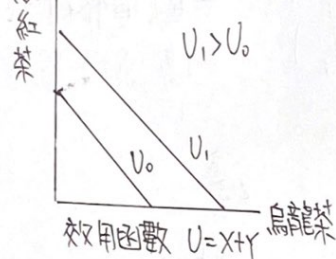 紅茶
U₁>U₀
U₀
U₁
烏龍茶
效用函數 U=X+Y